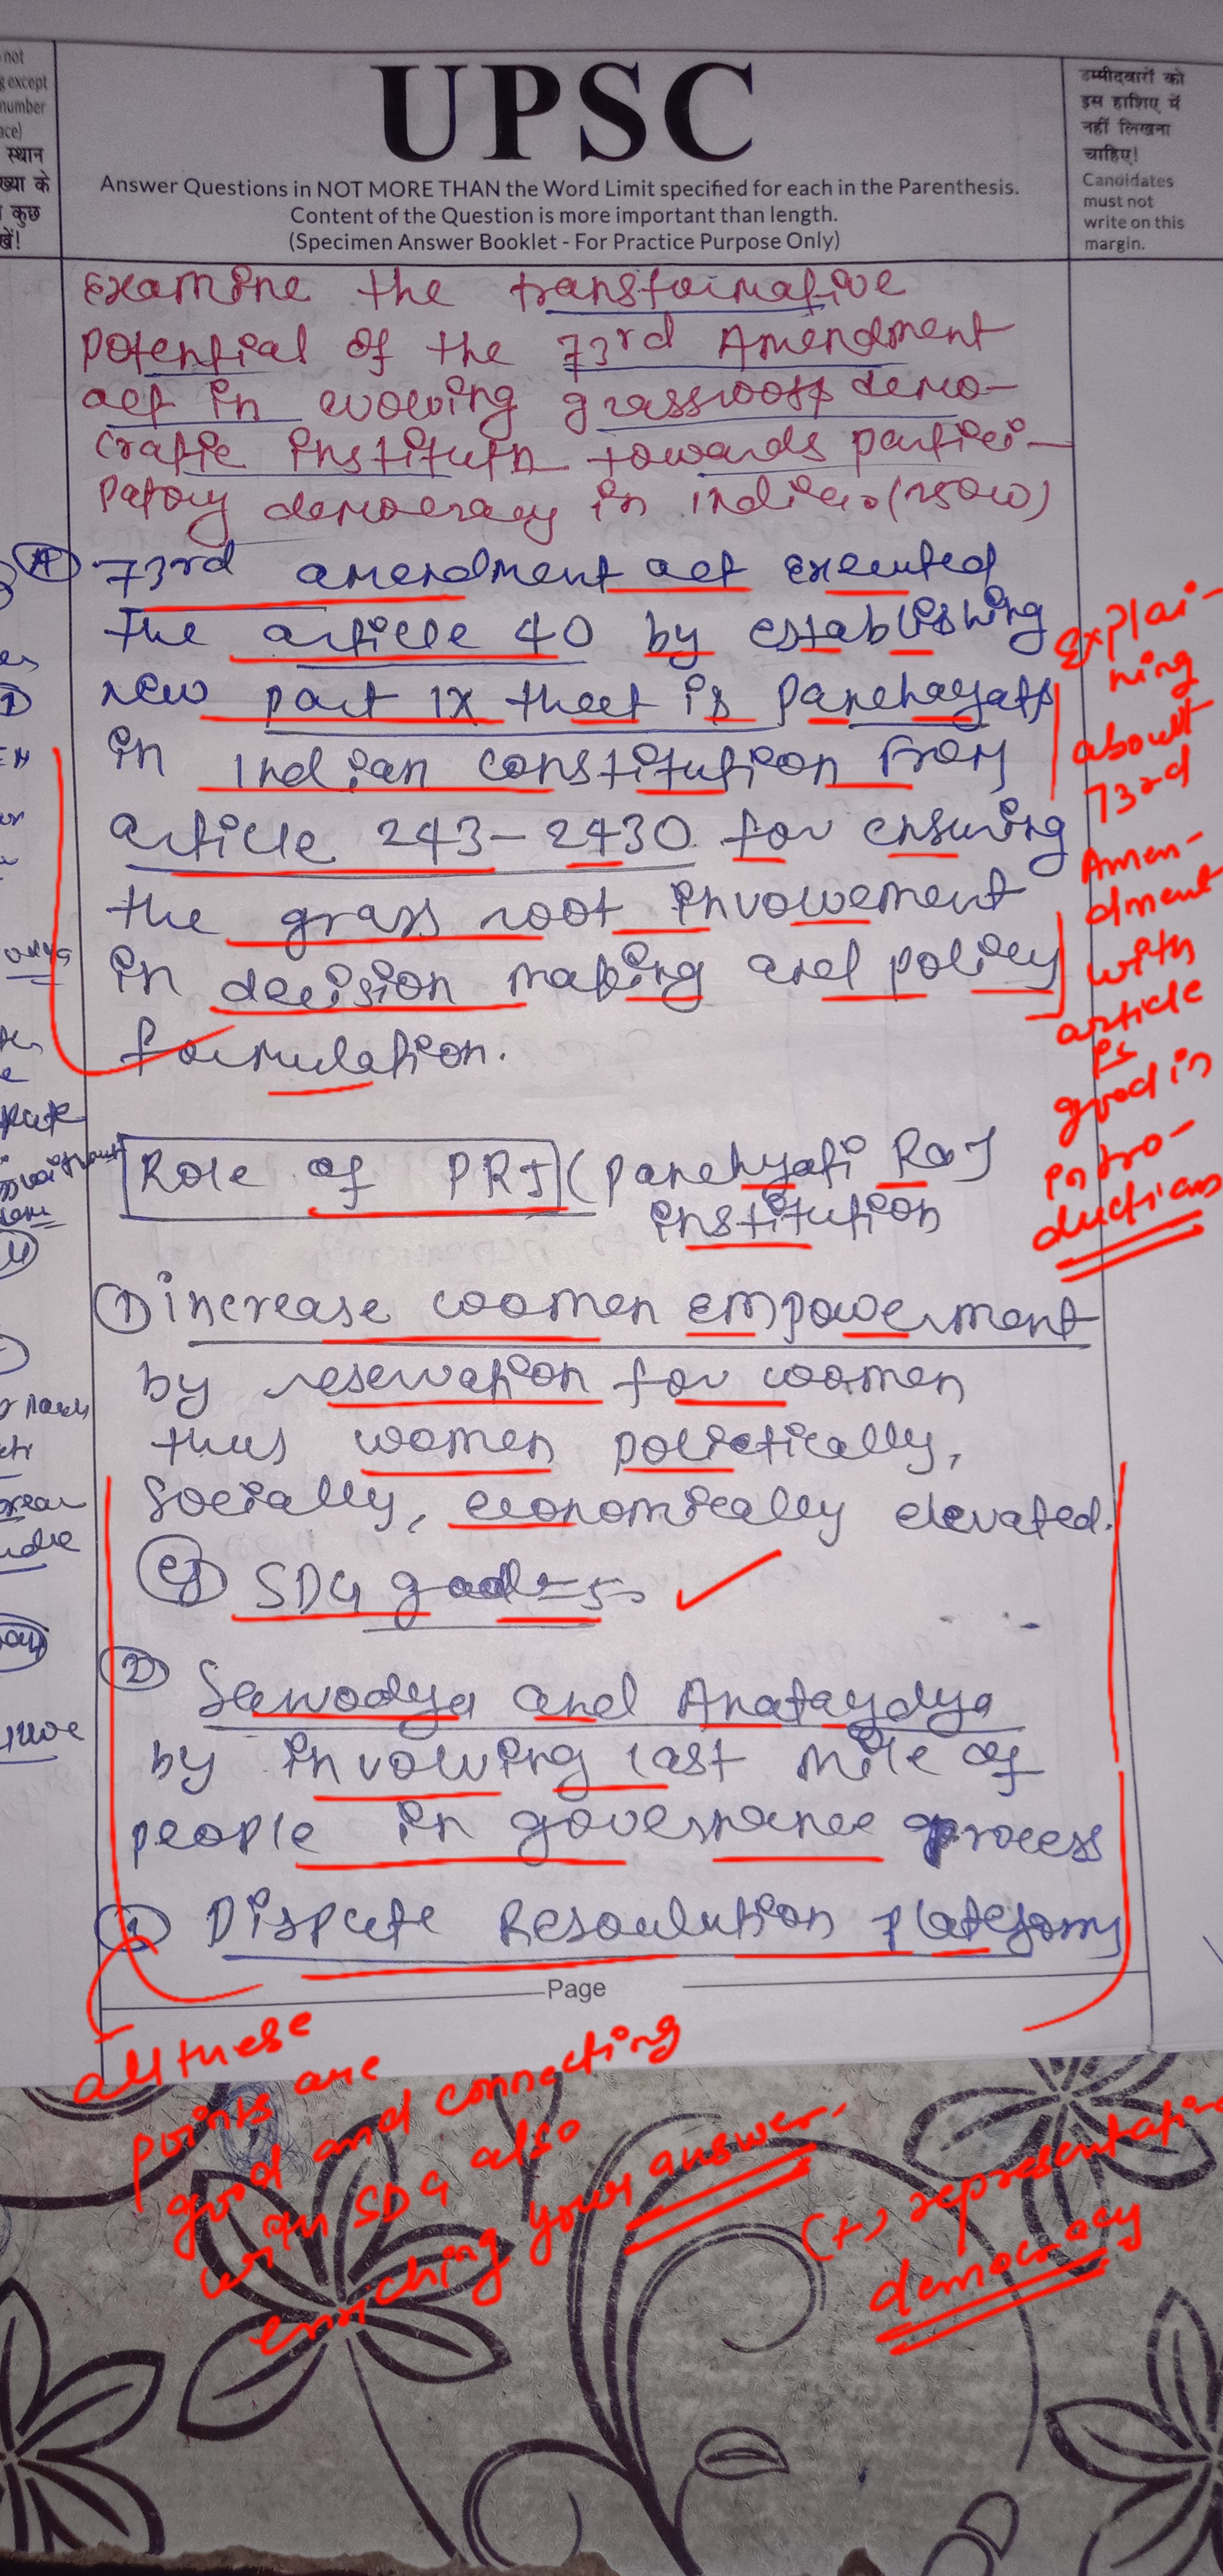 not
g except
number
ace)
स्थान
ख्या के
कुछ
खें!
UPSC
Answer Questions in NOT MORE THAN the Word Limit specified for each in the Parenthesis.
Content of the Question is more important than length.
(Specimen Answer Booklet - For Practice Purpose Only)
उम्मीदवारों को
इस हाशिए में
नहीं लिखना
चाहिए!
Candidates
must not
write on this
margin.
Examine the transformative
potential of the 73rd Amendment
act in evolving grassroots demo-
cratic institutn towards partici-
patory democracy in India. (250w)
(A) 73rd amendment act executed
the article 40 by establishing
new part IX that is panchayats
in Indian constitution from
article 243-243O for ensuring
the grass root involvement
in decision making and policy
formulation.
Explai-
ning
about
73rd
Amen-
dment
with
article
is
good in
intro-
ductions
Role of PRI (Panchyati Raj
institution
① increase women empowerment
by reservation for women
thus women polictically,
socially, economically elevated.
eg SDG goal-5
② Sarvodya and Anataydya
by involving last mile of
people in governance process
③ Dispute Resoulution platform
Page
all these
points are
good and connecting
with SDG also
enriching your answer.
(+) representative
democracy